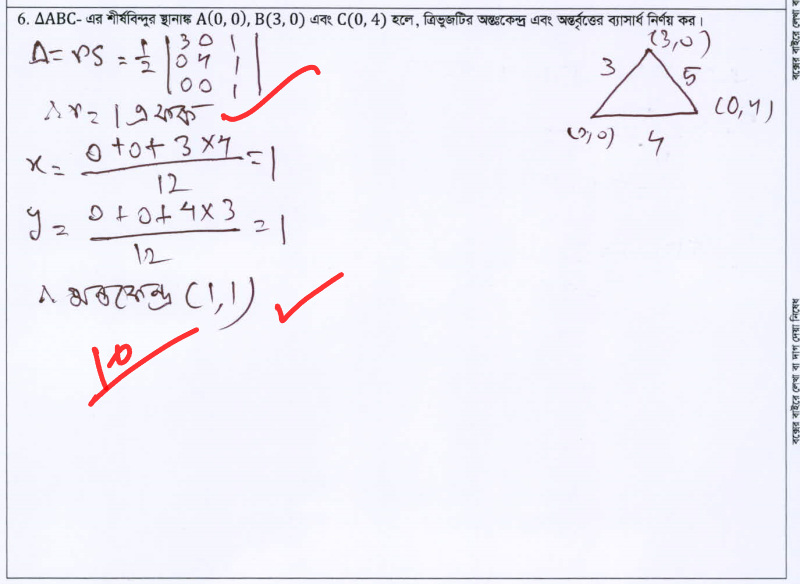 6. ΔABC- এর শীর্ষবিন্দুর স্থানাঙ্ক A(0, 0), B(3, 0) এবং C(0, 4) হলে, ত্রিভুজটির অন্তঃকেন্দ্র এবং অন্তর্বৃত্তের ব্যাসার্ধ নির্ণয় কর।
Δ = rs = 1/2 | 3 0 1 |
| 0 4 1 |
| 0 0 1 |
∴ r = 1 একক
x = (0+0+3×4)/12 = 1
y = (0+0+4×3)/12 = 1
∴ অন্তকেন্দ্র (1,1)
10
(3,0)
3 5
(0,0) 4 (0,4)
বক্সের বাইরে লেখা বা দাগ দেয়া নিষেধ